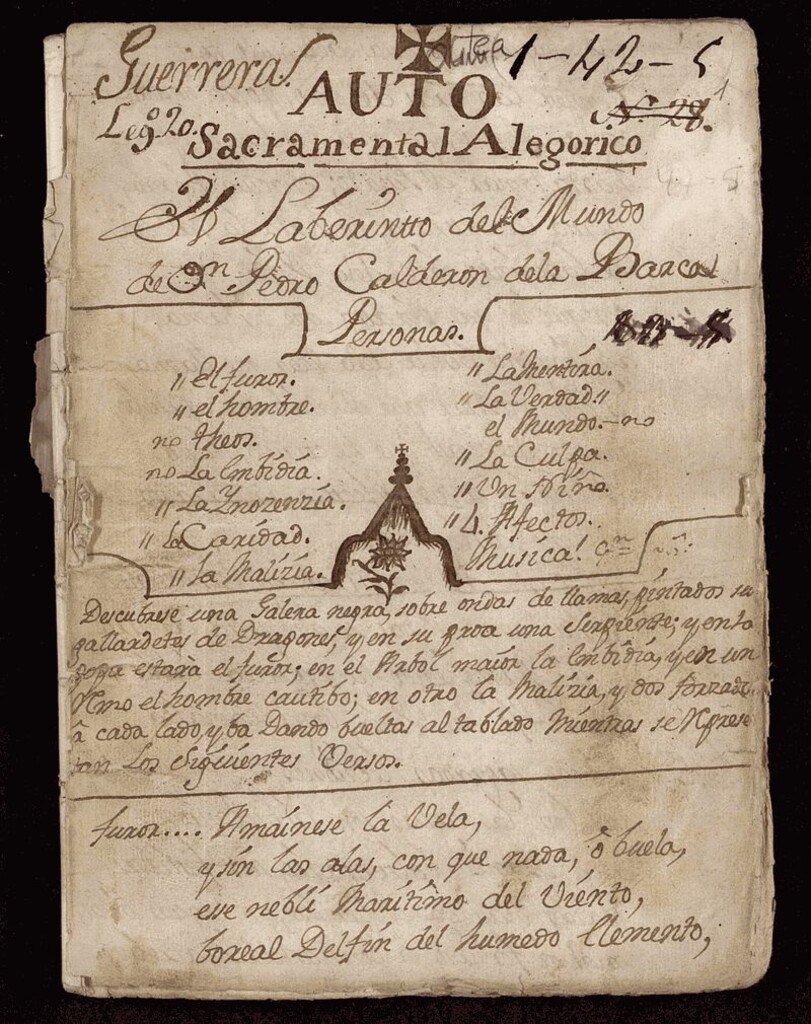 Guerrera.
1-42-5
AUTO
Leg.º 20.
N.º 28.
Sacramental Alegorico
El Laberintto del Mundo
de Dn Pedro Calderon dela Barca
Personas.
" El furor.
" el hombre.
no theos.
no La Embidia.
" La Ynozenzia.
" la Caridad.
" La Malizia.
" La Mentira.
" La Verdad "
el Mundo.-no
" La Culpa.
" Un Niño.
" 4. Afectos.
Musica.
Descubrese una Galera negra, sobre ondas de llamas, pintados su
gallardetes de Dragones, y en su proa una Serpiente; y en la
popa estara el furor; en el Arbol maior la Embidia, y en un
Rmo el hombre cautibo; en otro la Malizia, y dos forzado
à cada lado, y ba Dando bueltas al tablado Mientras se Rprese
tan Los Siguientes Versos.
furor.... Amainese la Vela,
y son las alas, con que nada, ò buela,
ese neblì Maritimo del Viento,
boreal Delfin del humedo Elemento,